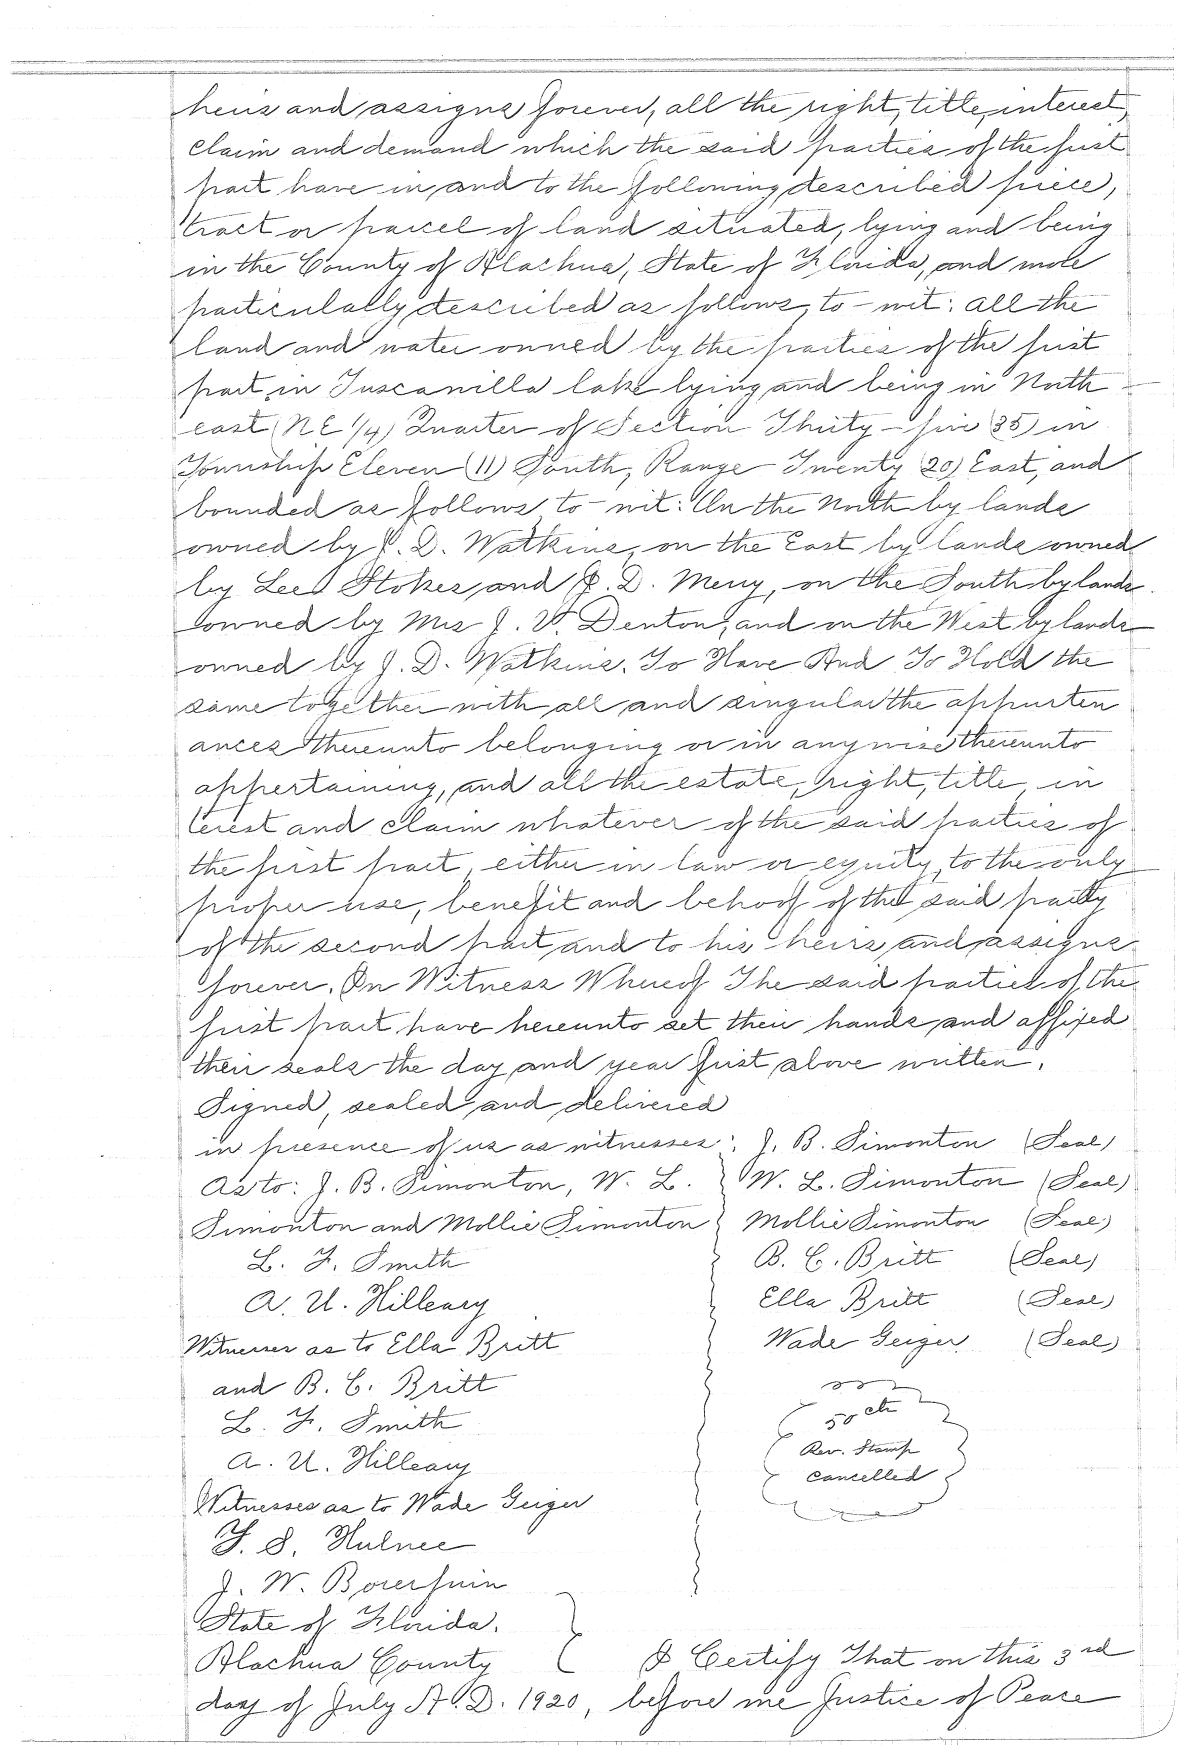 heirs and assigns forever, all the right, title, interest,
claim and demand which the said parties of the first
part have in and to the following described piece,
tract or parcel of land situated, lying and being
in the County of Alachua, State of Florida, and more
particularly described as follows, to-wit: All the
land and water owned by the parties of the first
part in Tuscanilla lake lying and being in North
east (NE 1/4) Quarter of Section Thirty-five (35) in
Township Eleven (11) South, Range Twenty (20) East, and
bounded as follows, to-wit: On the North by lands
owned by J. D. Watkins, on the East by lands owned
by Lee Stokes and J. D. Merry, on the South by lands
owned by Mrs J. V. Denton, and on the West by lands
owned by J. D. Watkins. To Have And To Hold the
same together with all and singular the appurten
ances thereunto belonging or in anywise thereunto
appertaining, and all the estate, right, title, in
terest and claim whatever of the said parties of
the first part, either in law or equity, to the only
proper use, benefit and behoof of the said party
of the second part, and to his heirs and assigns
forever. In Witness Whereof The said parties of the
first part have hereunto set their hands and affixed
their seals the day and year first above written.
Signed, sealed and delivered
in presence of us as witnesses: J. B. Simonton (Seal)
As to: J. B. Simonton, W. L. W. L. Simonton (Seal)
Simonton and Mollie Simonton Mollie Simonton (Seal)
L. F. Smith B. C. Britt (Seal)
A. U. Hilleary Ella Britt (Seal)
Witnesses as to Ella Britt Wade Geiger (Seal)
and B. C. Britt
L. F. Smith 50 cts
A. U. Hilleary Rev. Stamp
cancelled
Witnesses as to Wade Geiger
J. W.
State of Florida.
Alachua County I Certify That on this 3rd
day of July A.D. 1920, before me Justice of Peace